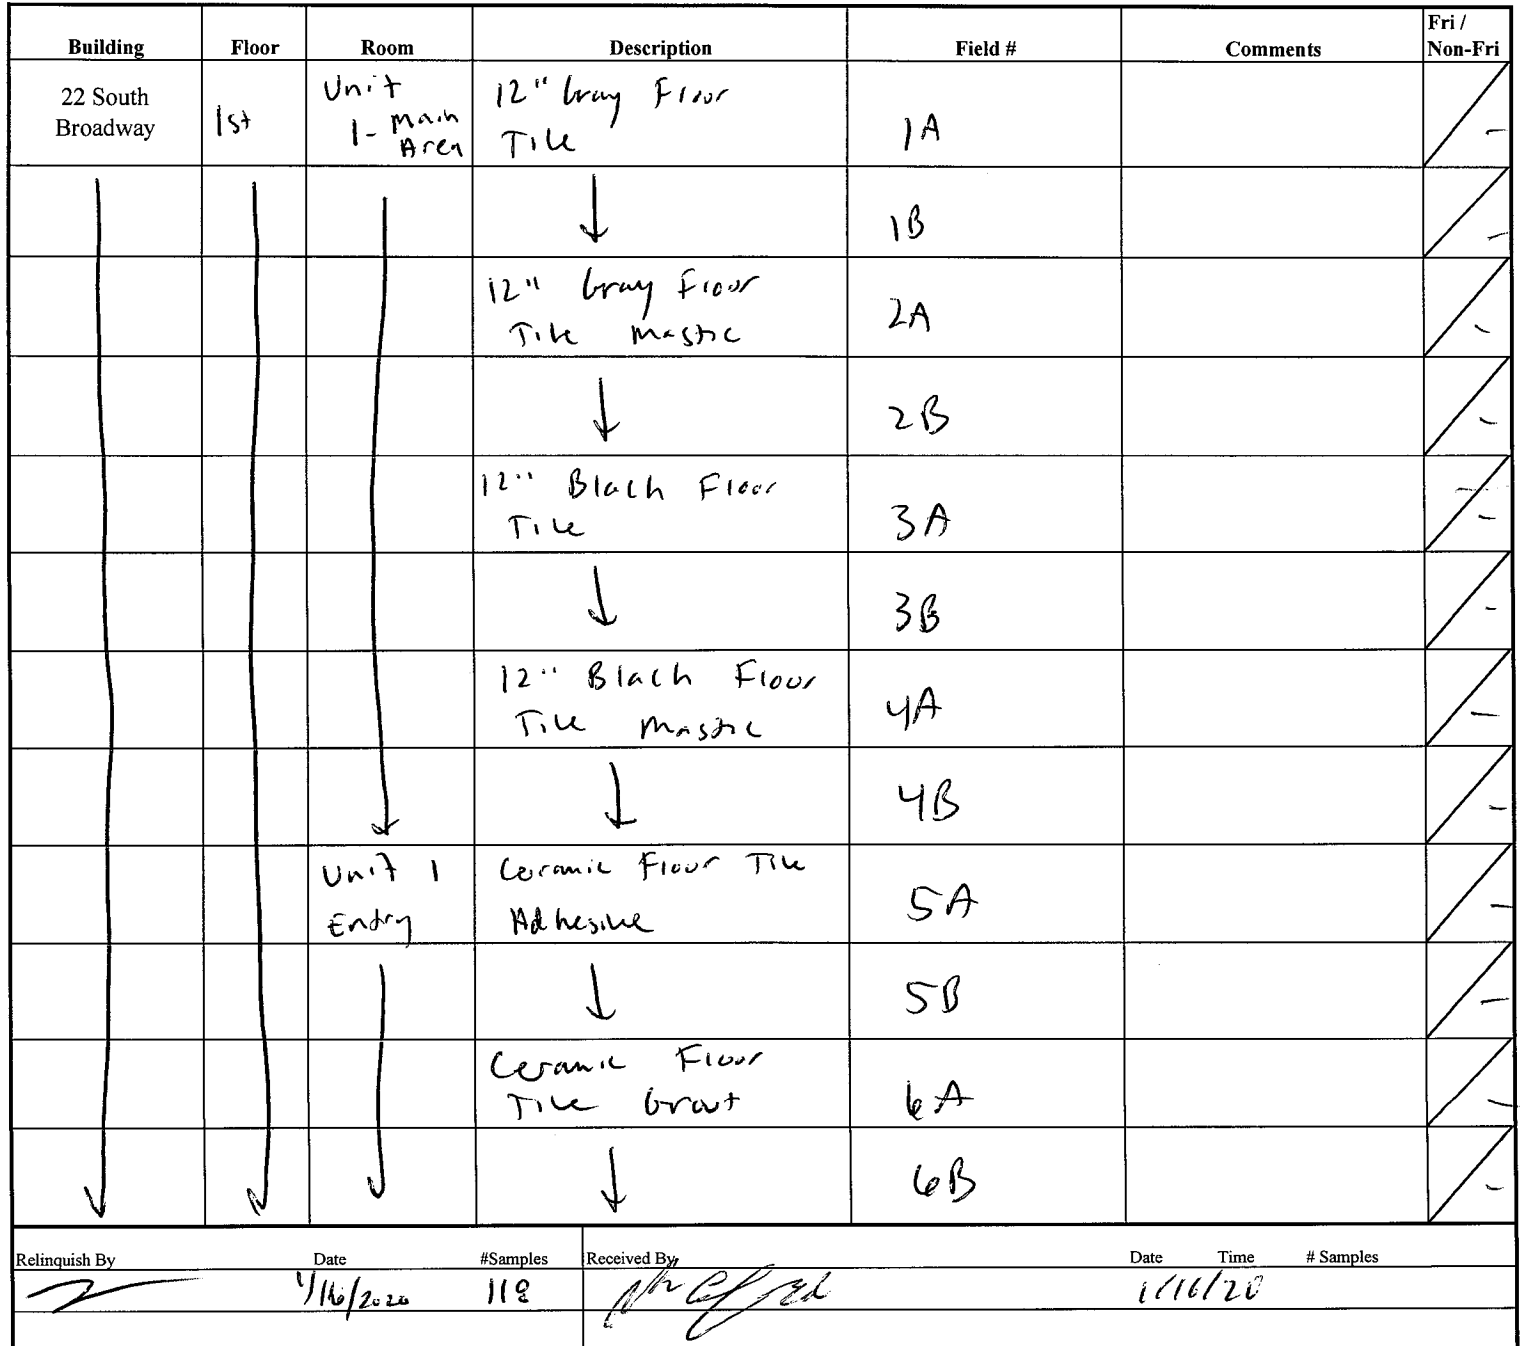 Building Floor Room Description Field # Comments Fri / Non-Fri
22 South Broadway 1st Unit 1- Main Area 12" Gray Floor Tile 1A -
1B -
12" Gray Floor Tile Mastic 2A -
2B -
12" Black Floor Tile 3A -
3B -
12" Black Floor Tile Mastic 4A -
4B -
Unit 1 Entry Ceramic Floor Tile Adhesive 5A -
5B -
Ceramic Floor Tile Grout 6A -
6B -
Relinquish By Date #Samples Received By Date Time # Samples
1/16/2020 118 1/16/20